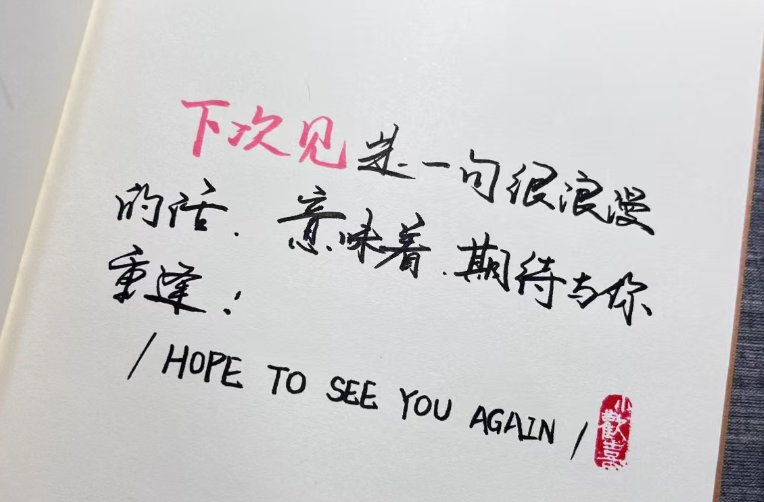 下次见是一句很浪漫
的话.意味着.期待与你
重逢!
/HOPE TO SEE YOU AGAIN/
小歡喜